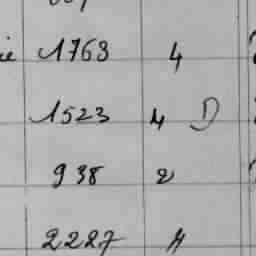 1763 4
1523 4 D
938 2
2227 4